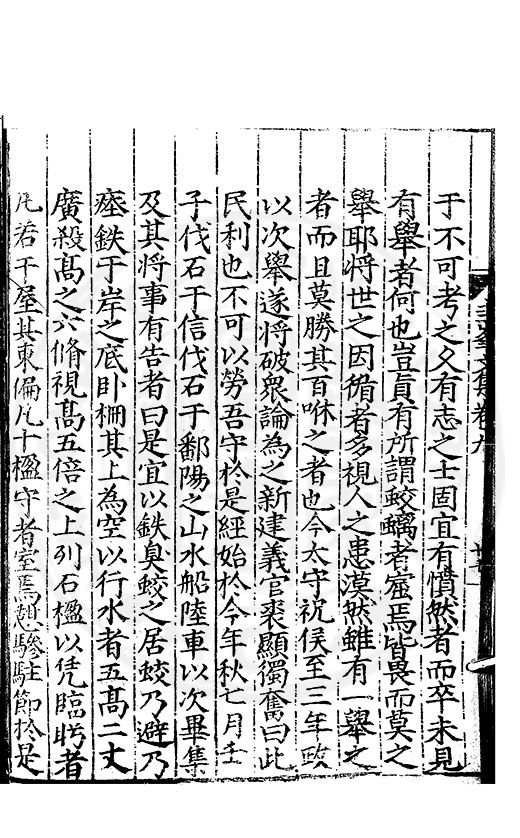 于不可考之久有志之士固宜有憤然者而卒未見
有舉者何也豈眞有所謂蛟螭者窟焉皆畏而莫之
舉耶將世之因循者多視人之患漠然雖有一舉之
者而且莫勝其百咻之者也今太守祝侯至三年政
以次舉遂將破衆論為之新建義官裘顯獨奮曰此
民利也不可以勞吾守於是經始於今年秋七月壬
子伐石于信伐石于鄱陽之山水船陸車以次畢集
及其將事有告者曰是宜以鉄臭蛟之居蛟乃避乃
瘞鉄于岸之底卧柵其上為空以行水者五高二丈
廣殺高之六脩視高五倍之上列石楹以凭臨眄者
凡若干屋其東偏凡十楹守者室焉趨驂駐節於是
文集卷九